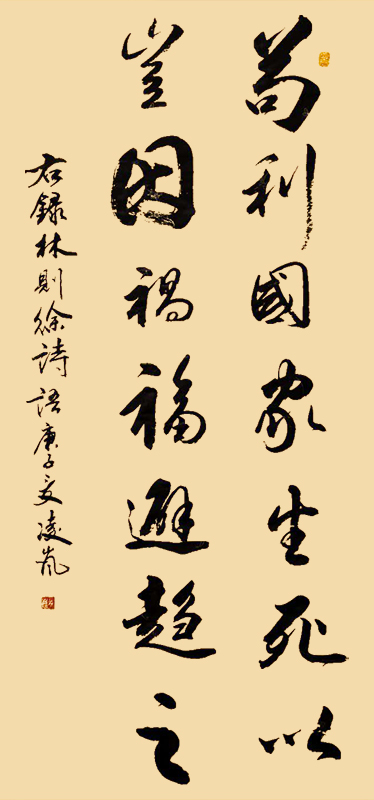 苟利國家生死以
豈因禍福避趨之
右錄林則徐詩語庚子夏凌岚